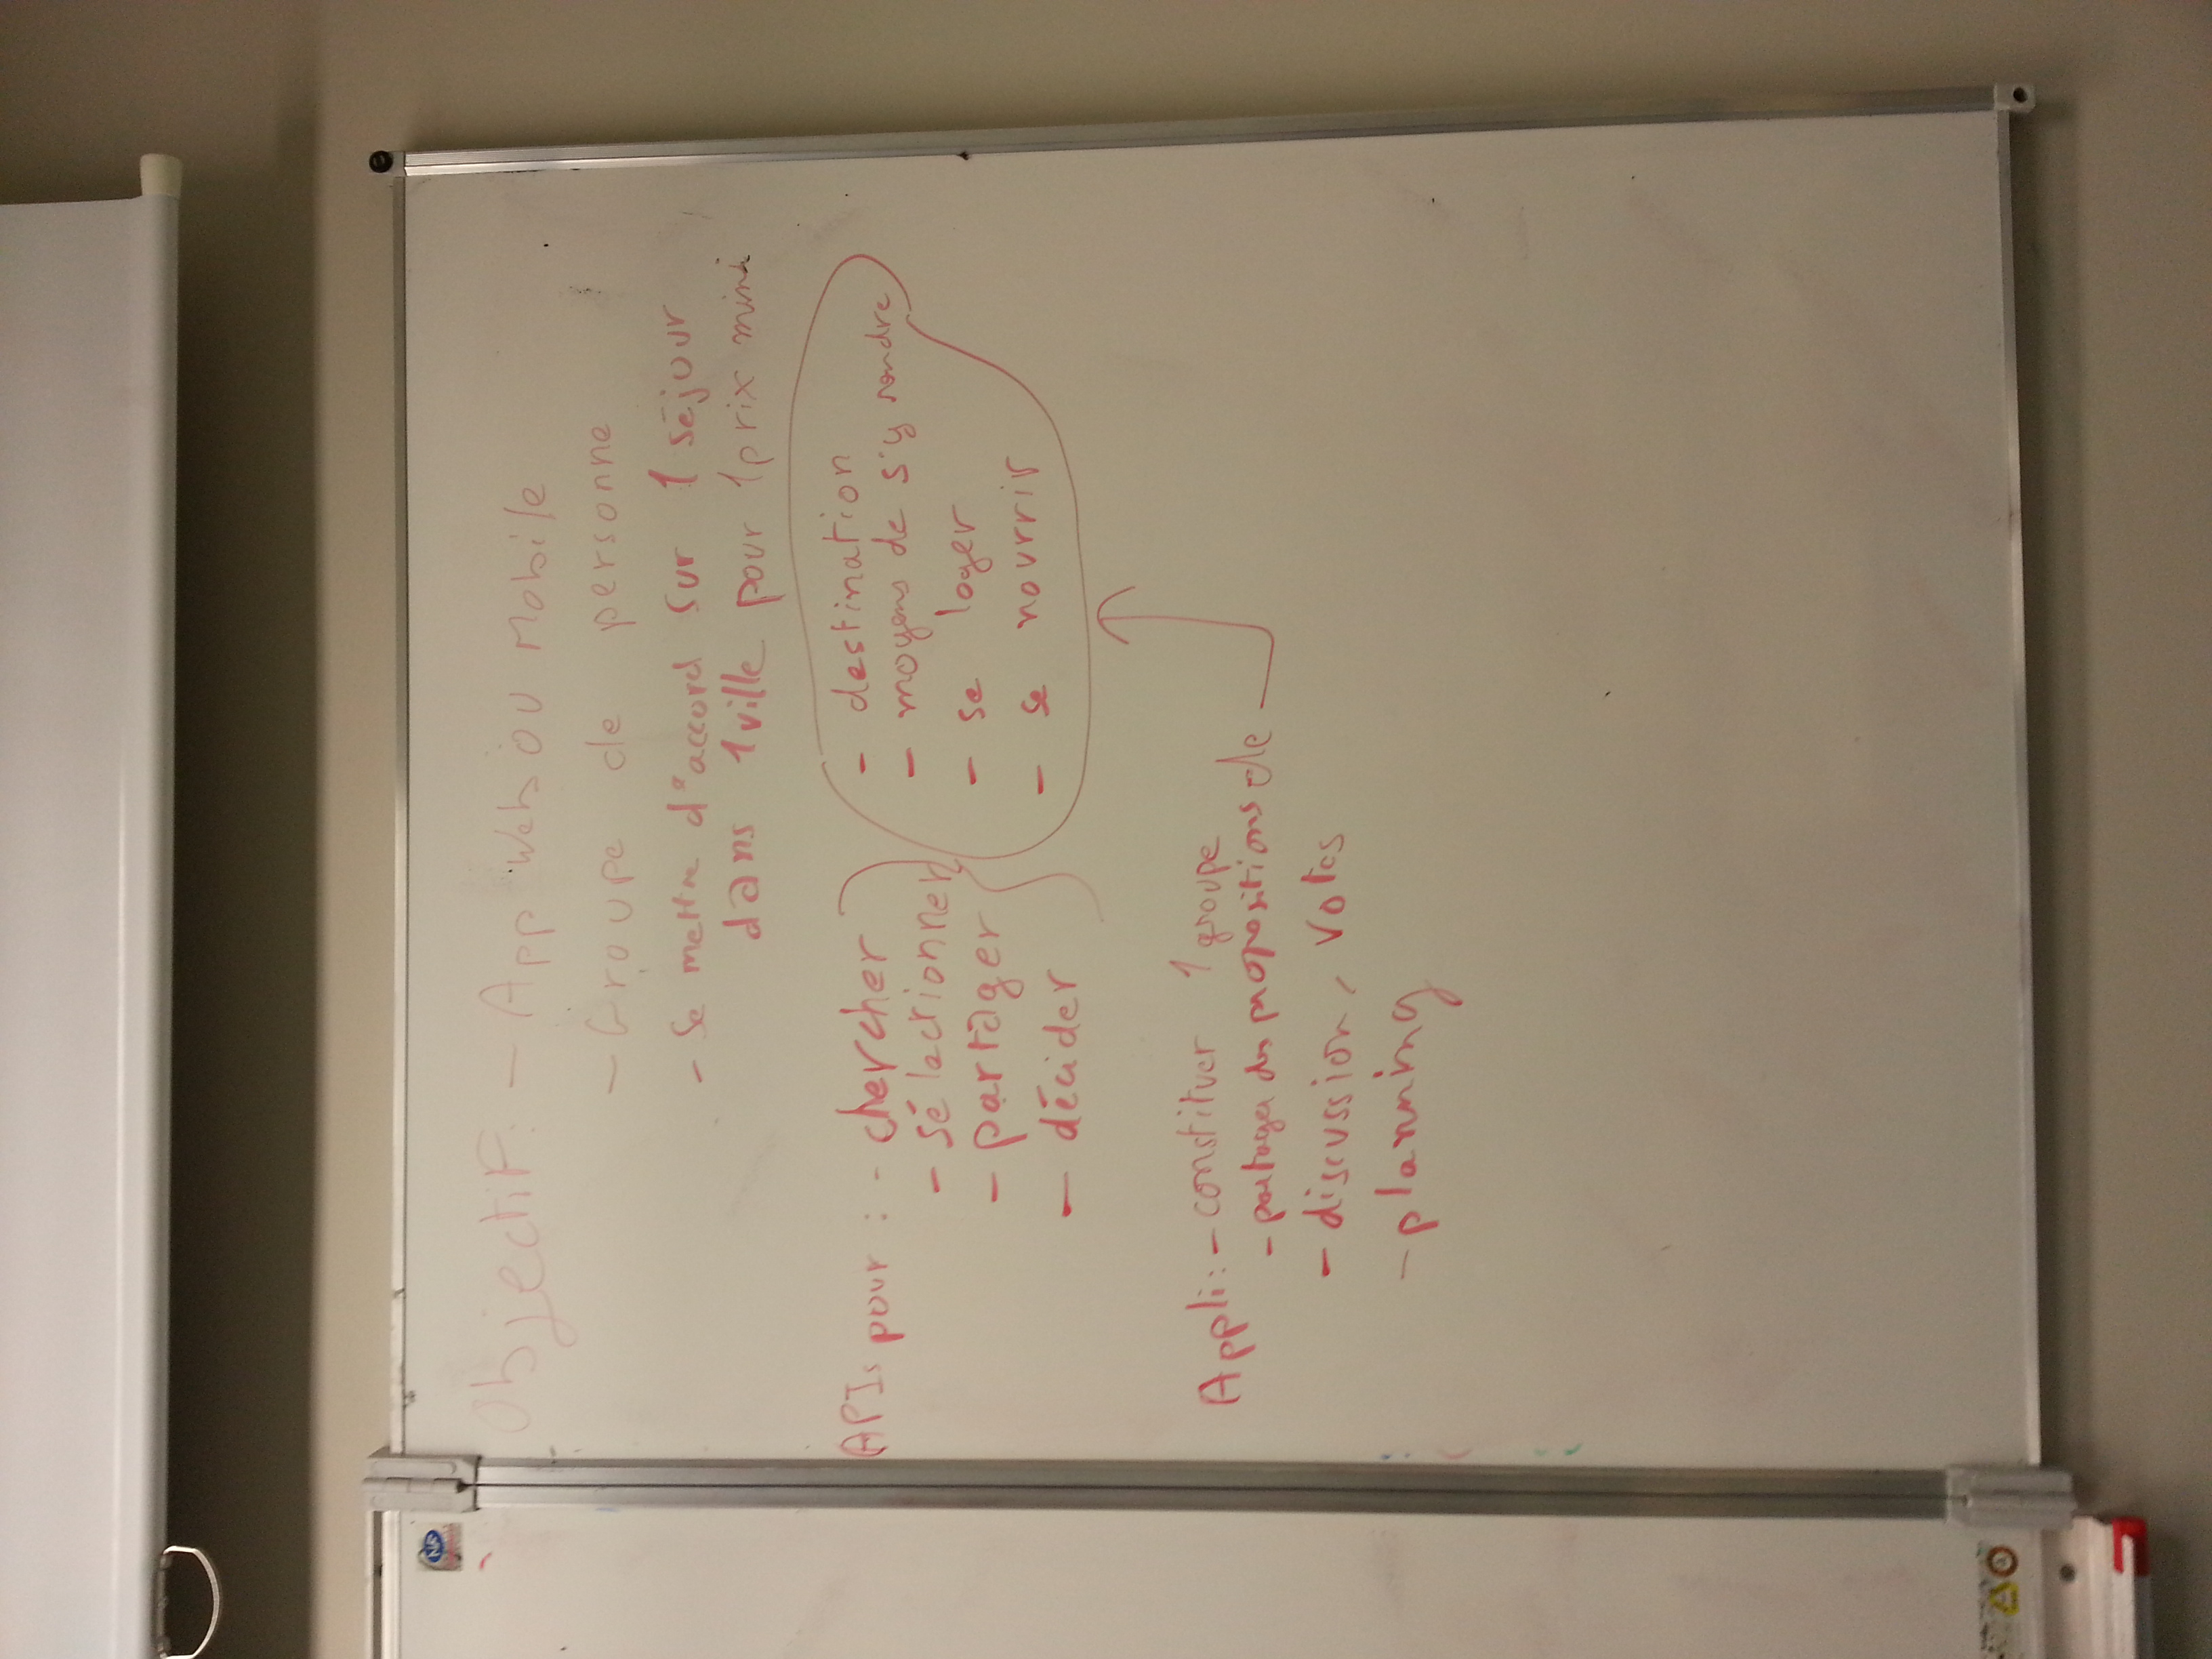 Objectif: - App Web ou Mobile
- Groupe de personne
- Se mettre d'accord sur 1 séjour
dans 1 ville pour 1 prix mini
APIs pour : - chercher
- sélectionner
- partager
- décider
- destination
- moyens de s'y rendre
- se loger
- se nourrir
Appli: - constituer 1 groupe
- partager des propositions de
- discussion, votes
- planning
NF